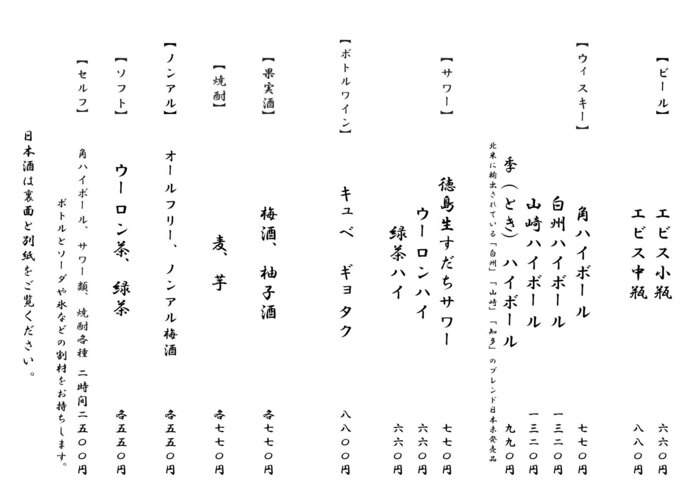 【ビール】
エビス小瓶 六六〇円
エビス中瓶 八八〇円
【ウィスキー】
角ハイボール 七七〇円
白州ハイボール 一三二〇円
山崎ハイボール 一三二〇円
季(とき)ハイボール 九九〇円
北米に輸出されている「白州」「山崎」「知多」のブレンド日本未発売品
【サワー】
徳島生すだちサワー 七七〇円
ウーロンハイ 六六〇円
緑茶ハイ 六六〇円
【ボトルワイン】
キュベ ギョタク 八八〇〇円
【果実酒】
梅酒、柚子酒 各七七〇円
【焼酎】
麦、芋 各七七〇円
【ノンアル】
オールフリー、ノンアル梅酒 各五五〇円
【ソフト】
ウーロン茶、緑茶 各五五〇円
【セルフ】
角ハイボール、サワー類、焼酎各種 二時間二五〇〇円
ボトルとソーダや氷などの割材をお持ちします。
日本酒は裏面と別紙をご覧ください。